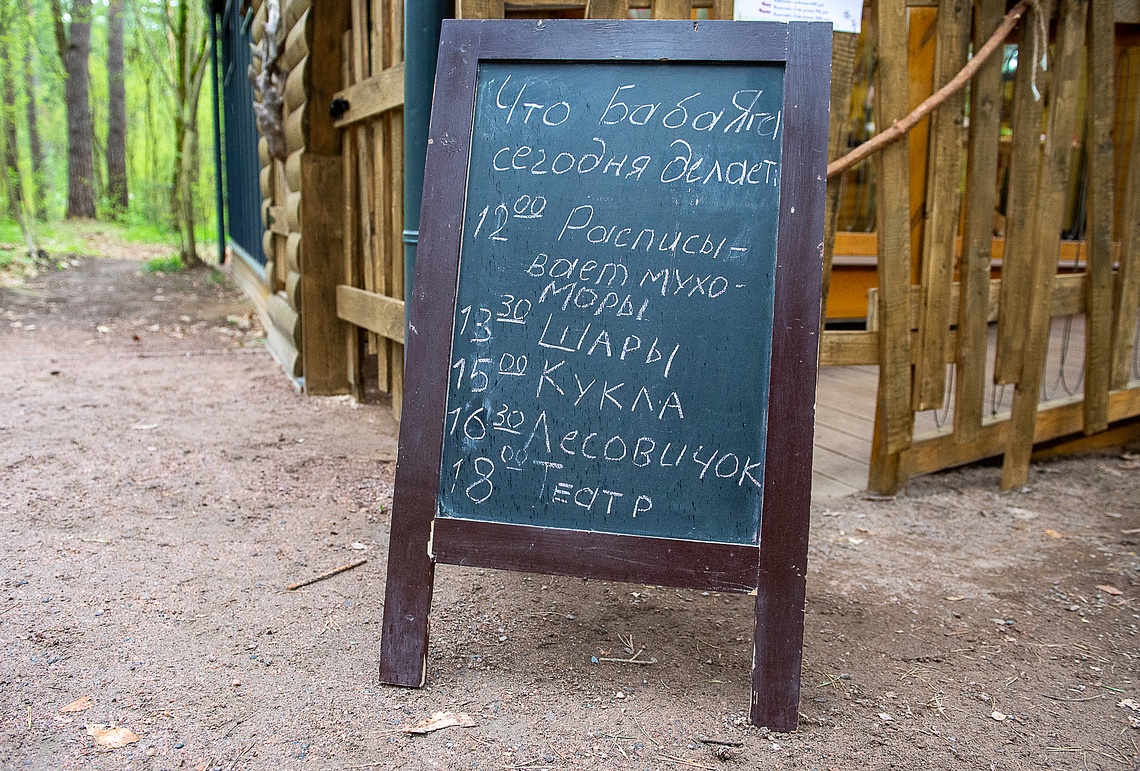 Что Баба Яга
сегодня делает:
12 00 Расписы-
вает мухо-
моры
13 30 ШАРЫ
15 00 КУКЛА
16 30 Лесовичок
18 00 Театр